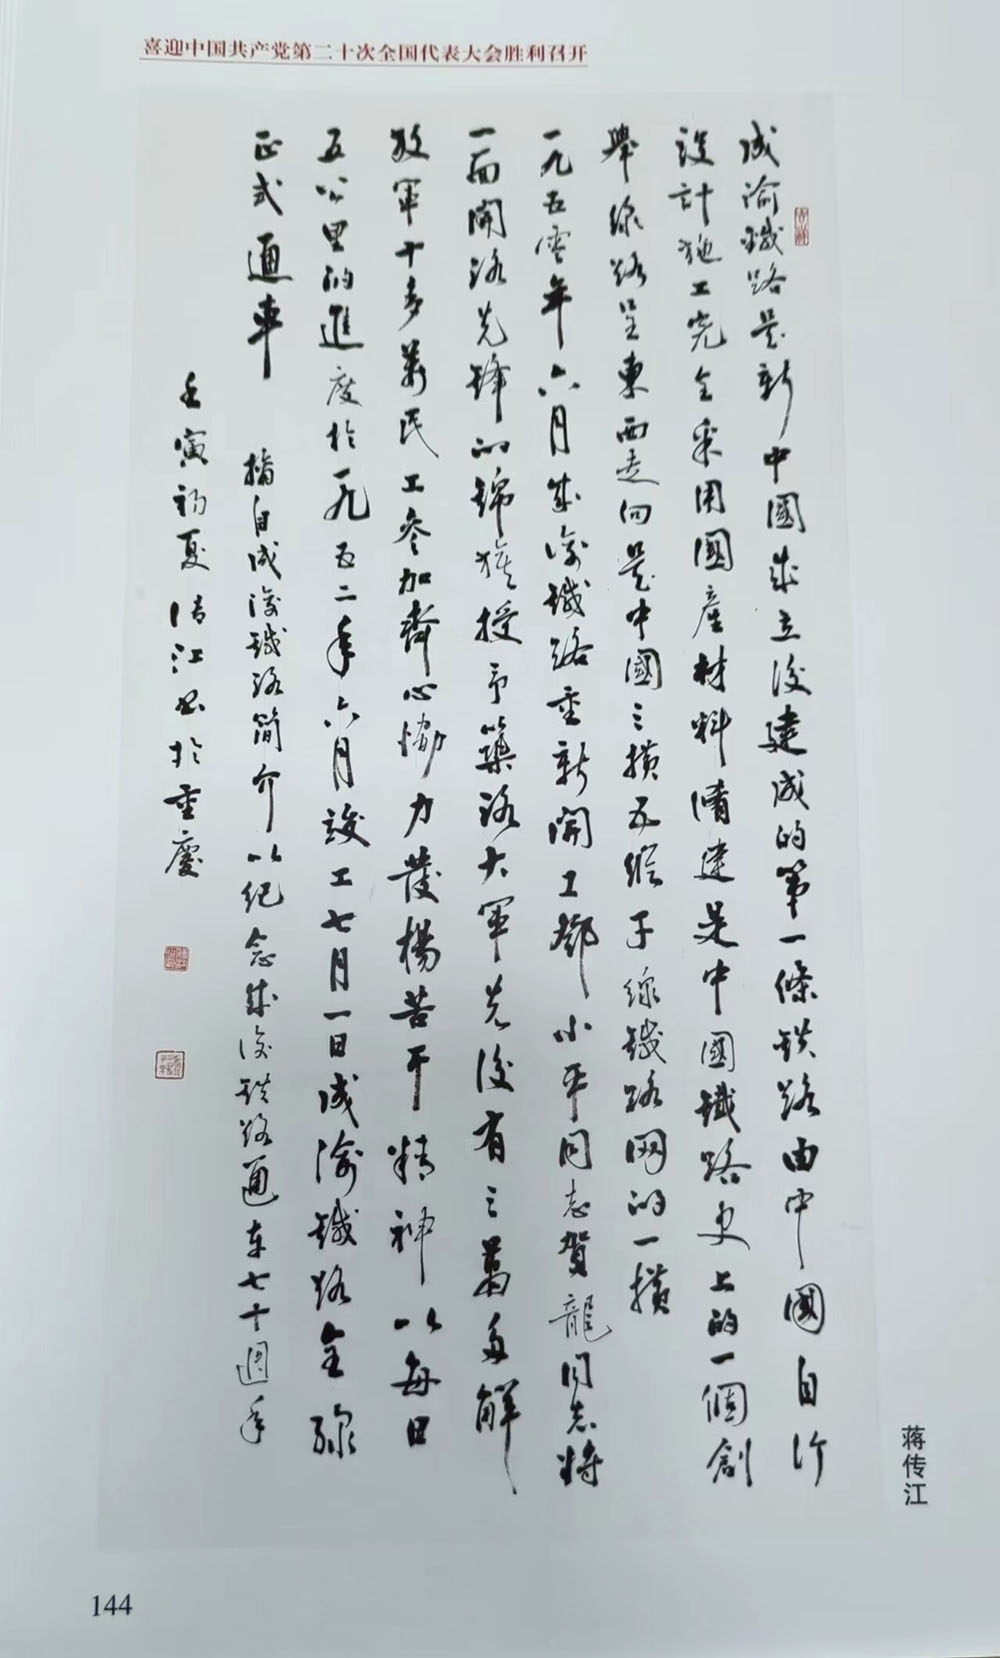 喜迎中国共产党第二十次全国代表大会胜利召开
成渝鐵路是新中國成立後建成的第一條鉄路由中國自行
設計施工完全采用國產材料修建是中國鐵路史上的一個創
舉線路呈東西走向是中國三橫五縱干線鐵路网的一橫
一九五零年六月成渝鐵路重新開工鄧小平同志賀龍同志將
一面開路先鋒的錦旗授予築路大軍先後有三萬多解
放軍十多萬民工參加齊心協力發楊苦干精神以每日
五公里的進度於一九五二年六月竣工七月一日成渝鐵路全線
正式通車 摘自成渝鐵路簡介以纪念成渝鉄路通车七十週年
壬寅初夏传江书於重慶
蒋传江
144